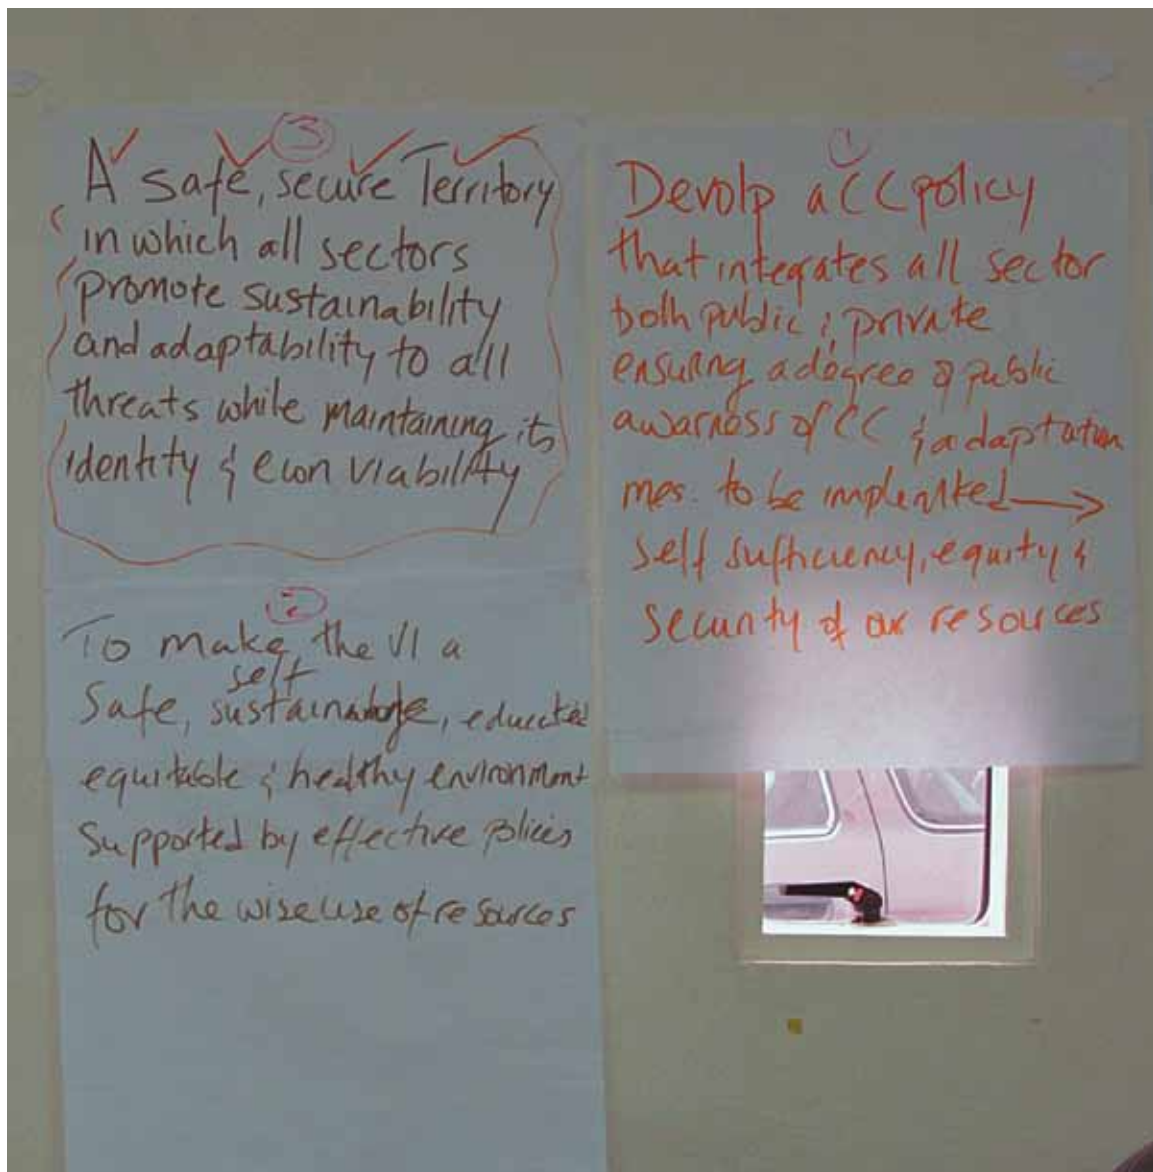 ③
A safe, secure Territory
in which all sectors
promote sustainability
and adaptability to all
threats while maintaining its
identity & econ viability
②
To make the VI a
self
Safe, sustainable, educated
equitable & healthy environment
Supported by effective polices
for the wise use of resources
①
Devolp a CC policy
that integrates all sector
both public & private
ensuring a degree of public
awarness of CC & adaptation
mes. to be implented →
self sufficiency, equity &
security of our resources